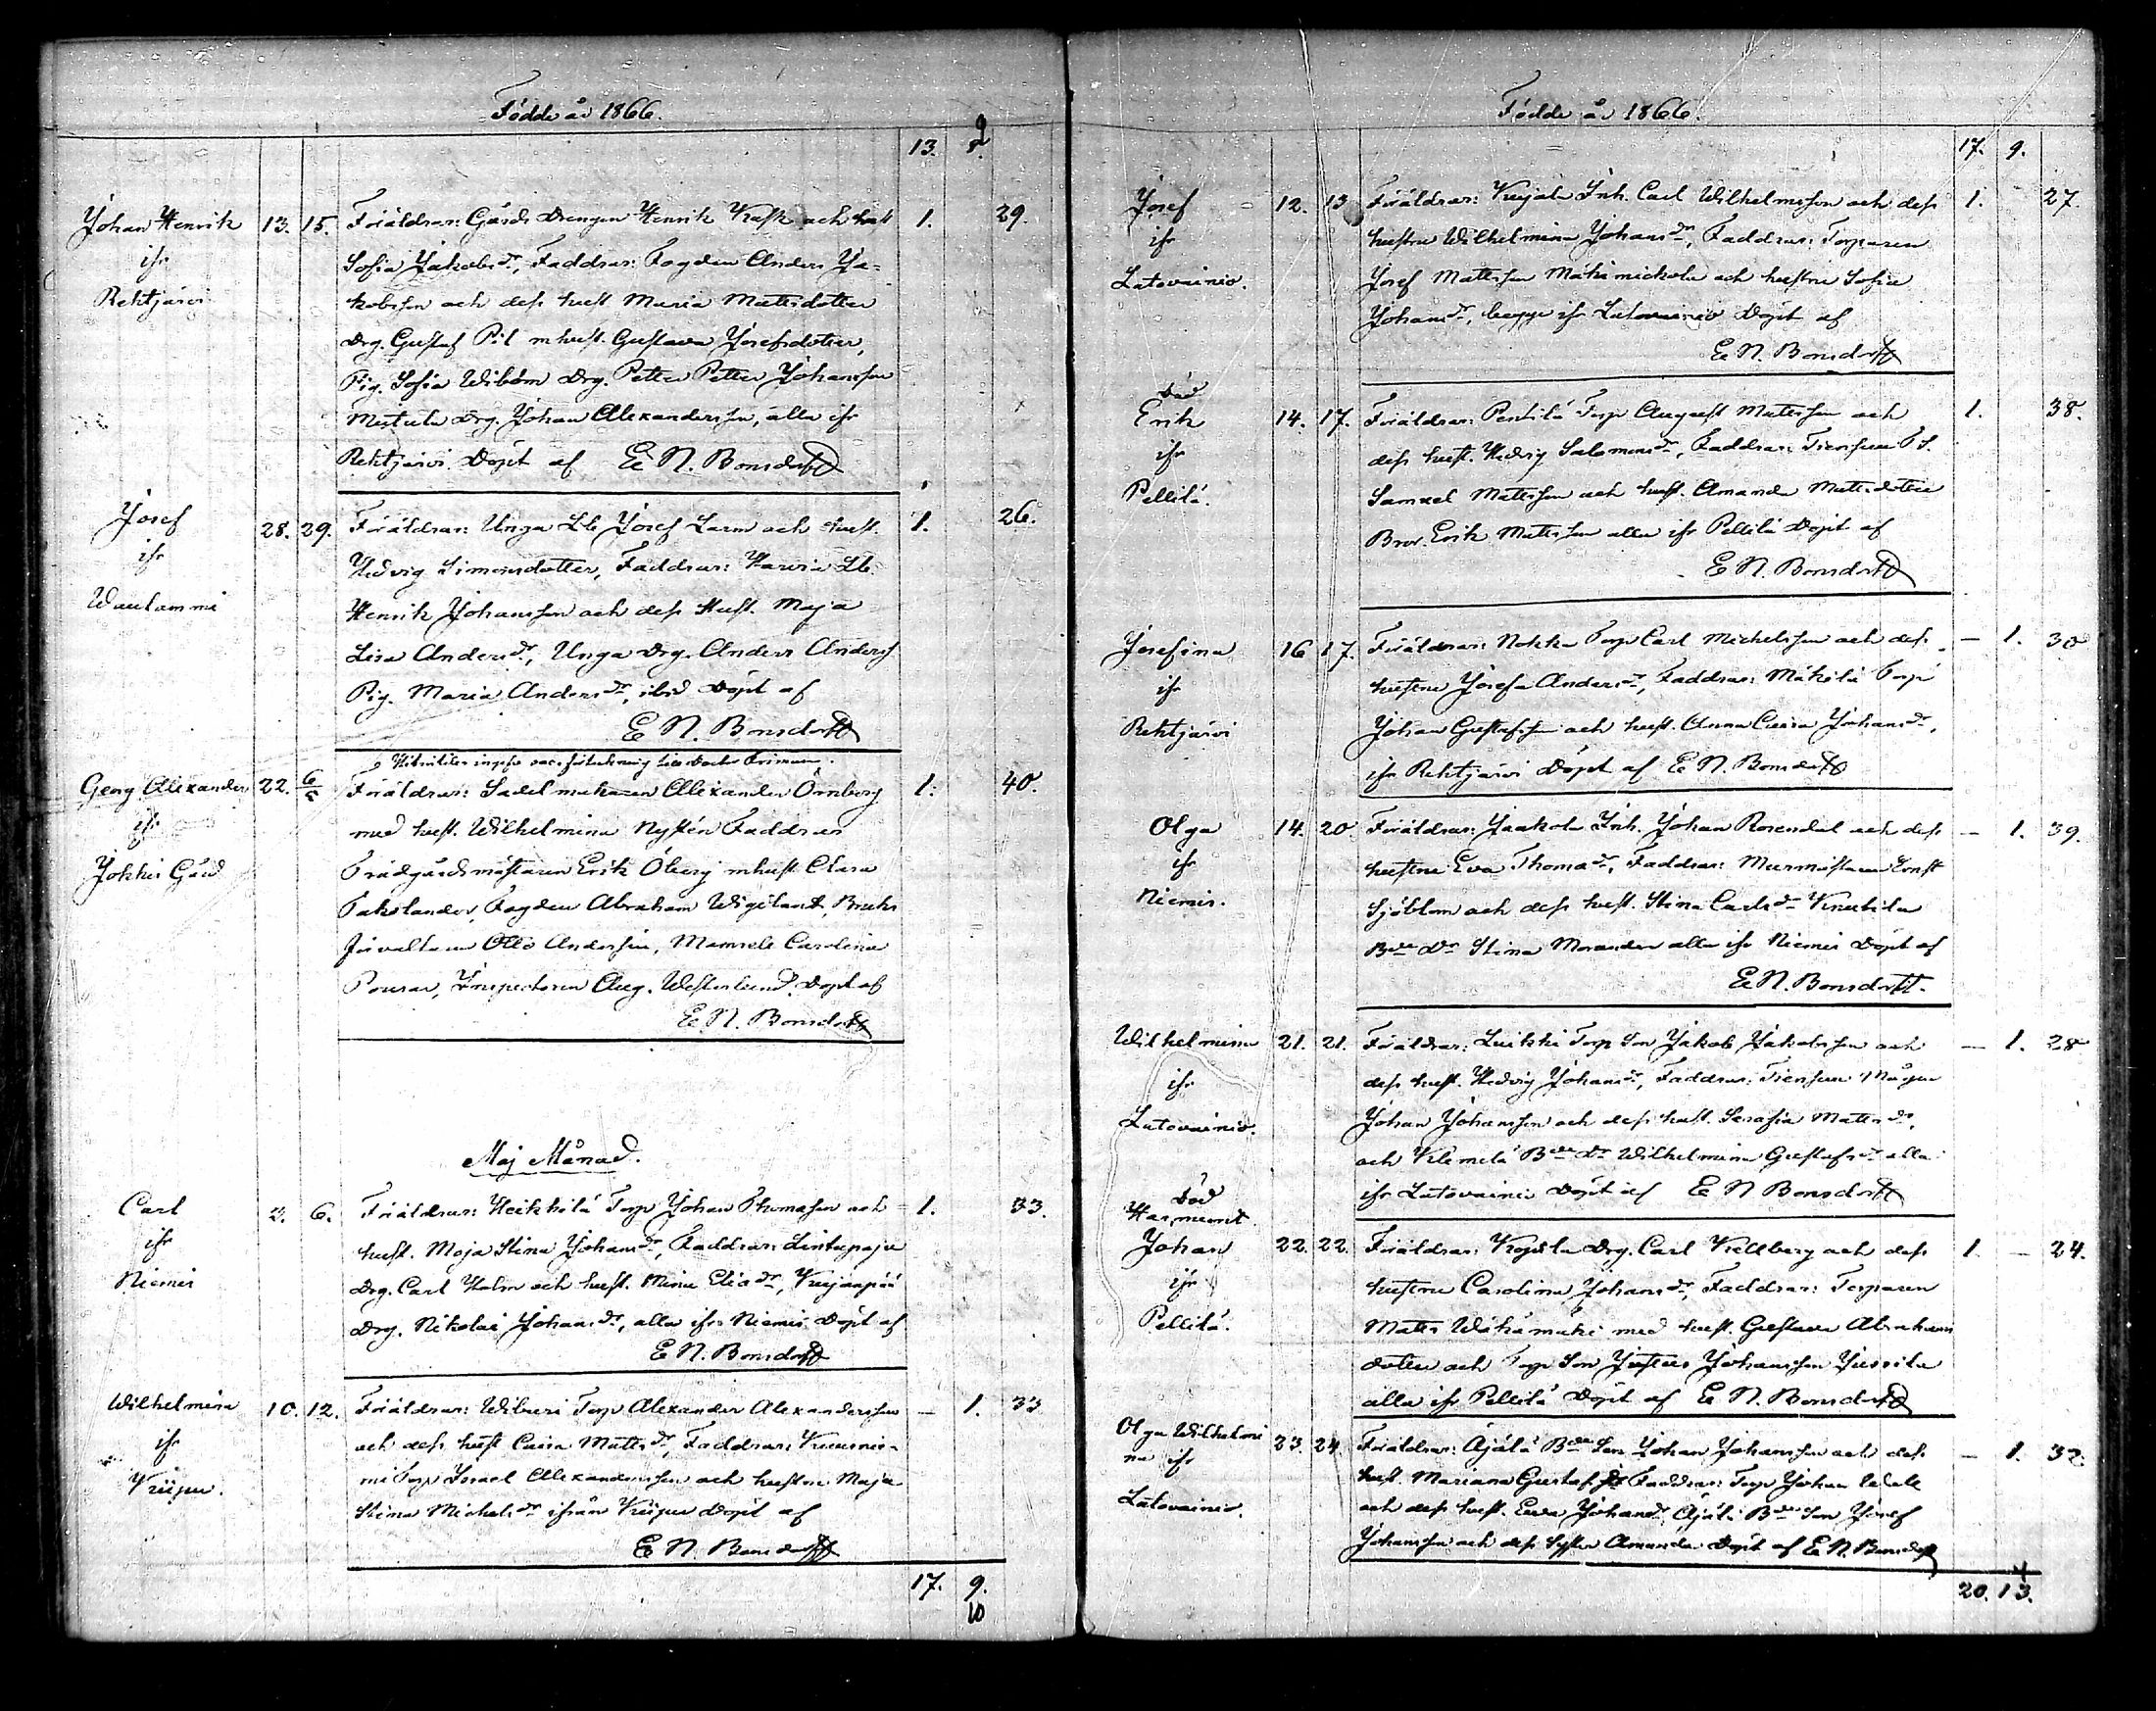 Födde år 1866.
13. 9
Johan Henrik 13. 15. Föräldrar: Gårds Drengen Henrik Rask och hust 1. 29.
ifr Sofia Jakobsdr, Faddrar: Fogden Anders Ja=
Rehtjärvi kobsson och dess hust Maria Mattsdotter
Drg. Gustaf Pil m hust. Gustava Josefsdotter,
Pig. Sofia Wibom Drg. Petter Petter Johansson
Mistula Drg. Johan Alexandersson, alla ifr
Rehtjärvi Döpt af E. N. Bonsdorff
Josef 28. 29. Föräldrar: Unga Lb Josef Larm och hust. 1. 26.
ifr Hedvig Simonsdotter, Faddrar: Harvia Lb.
Waulammi Henrik Johansson och dess Hust. Maja
Lisa Andersdr, Unga Drg. Anders Anderss
Pig. Maria Andersdr, ibid Döpt af
E. N. Bonsdorff
Georg Alexander 22. 6/5 Föräldrar: Sadelmakaren Alexander Örnberg 1. 40.
ifr med hust. Wilhelmina Nystén Faddrar
Jokkis Gård Trädgårdsmästaren Erik Öberg m hust Clara
Fogden Abraham Wigeland, Bruks
förvaltaren Otto Andersin, Mamsell Carolina
Inspectoren Aug. Westerlund. Döpt af
E. N. Bonsdorff
Maj Månad.
Carl 3. 6. Föräldrar: Heikkilä Torp Johan Thomasson och 1. 33.
ifr hust. Maja Stina Johansdr, Faddrar: Lintupaju
Niemis Drg. Carl Holm och hust. Mina Eliadr, Kujanpää
Drg. Nikolai Johansdr, alla ifr Niemis Döpt af
E. N. Bonsdorff
Wilhelmina 10. 12. Föräldrar: Wiburi Torp Alexander Alexandersson — 1. 33
ifr och dess hust Caisa Mattsdr, Faddrar: Kuusnie-
Kiipu. mi Torp Israel Alexandersson och hustru Maja
Stina Michelsdr ifrån Kiipu Döpt af
E. N. Bonsdorff
17. 9.
10
Födde år 1866.
17. 9.
Josef 12. 13 Föräldrar: Kujala Inh. Carl Wilhelmsson och dess 1. 27.
ifr hustru Wilhelmina Johansdr, Faddrar: Torparen
Latovainio. Josef Mattsson Mäkinickola och hustru Sofia
Johansdr, begge ifr Latovainio Döpt af
E. N. Bonsdorff
Död
Erik 14. 17. Föräldrar: Pentilä Torp August Mattsson och 1. 38.
ifr dess hust. Hedvig Salomonsdr, Faddrar: Tiensuu T. S.
Pellilä. Samuel Mattsson och hust. Amanda Mattsdotter
Bror. Erik Mattsson alla ifr Pellilä Döpt af
E. N. Bonsdorff
Josefina 16 17. Föräldrar: Nokka Torp Carl Michelsson och dess — 1. 30
ifr hustru Josefa Andersdr, Faddrar: Mäkilä Torp
Rehtjärvi Johan Gustafsson och hust. Anna Caisa Johansdr,
ifr Rehtjärvi Döpt af E. N. Bonsdorff
Olga 14. 20 Föräldrar: Jaakola Inh. Johan Rosendal och dess — 1. 39.
ifr hustru Eva Thomadr, Faddrar: Murmästaren Ernst
Niemis. Sjöblom och dess hust. Stina Carlsdr Knuutila
Bde Dr Stina Morander alla ifr Niemis Döpt af
E. N. Bonsdorff.
Wilhelmina 21. 21. Föräldrar: Luikki Torp Son Jakob Jakobsson och — 1. 28
ifr dess hust. Hedvig Johansdr, Faddrar: Tiensuu Mågen
Latovainio. Johan Johansson och dess hust. Serafia Mattsdr,
och Klemelä Bde Dr Wilhelmina Gustafsdr alla
ifr Latovainio Döpt af E N Bonsdorff
Död
Johan 22. 22. Föräldrar: Kojola Drg. Carl Kellberg och dess 1. — 24.
ifr hustru Carolina Johansdr, Faddrar: Torparen
Pellilä. Matts Wähämäki med hust. Gustava Abrahams
dotter och Torp Son Justus Johansson Jussila
alla ifr Pellilä Döpt af E. N. Bonsdorff
Olga Wilhelmi 23. 24 Föräldrar: Äjälä Bde Son Johan Johansson och dess — 1. 32.
na ifr hust. Mariana Gustafsdr Faddrar: Torp Johan
Latovainio. och dess hust. Eva Johansdr, Äjälä Bde Son Josef
Johansson och dess Syster Amanda Döpt af E. N. Bonsdorff
4
20. 13.